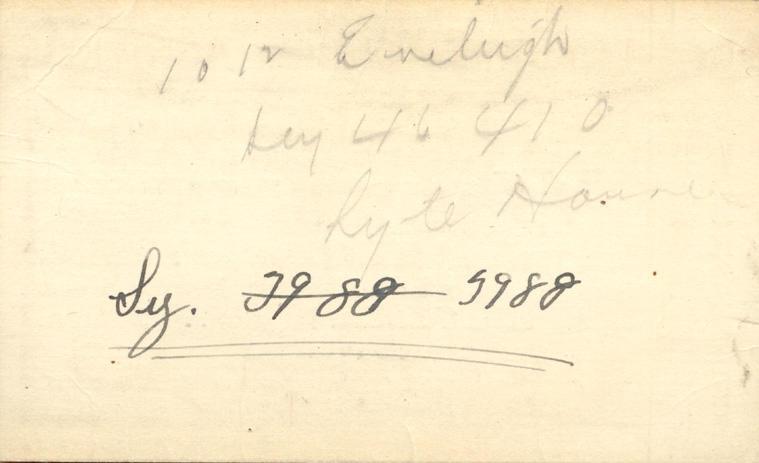 10 12 Eveleigh
Ley 46 410
Lyte House
Sy. 7988 5988